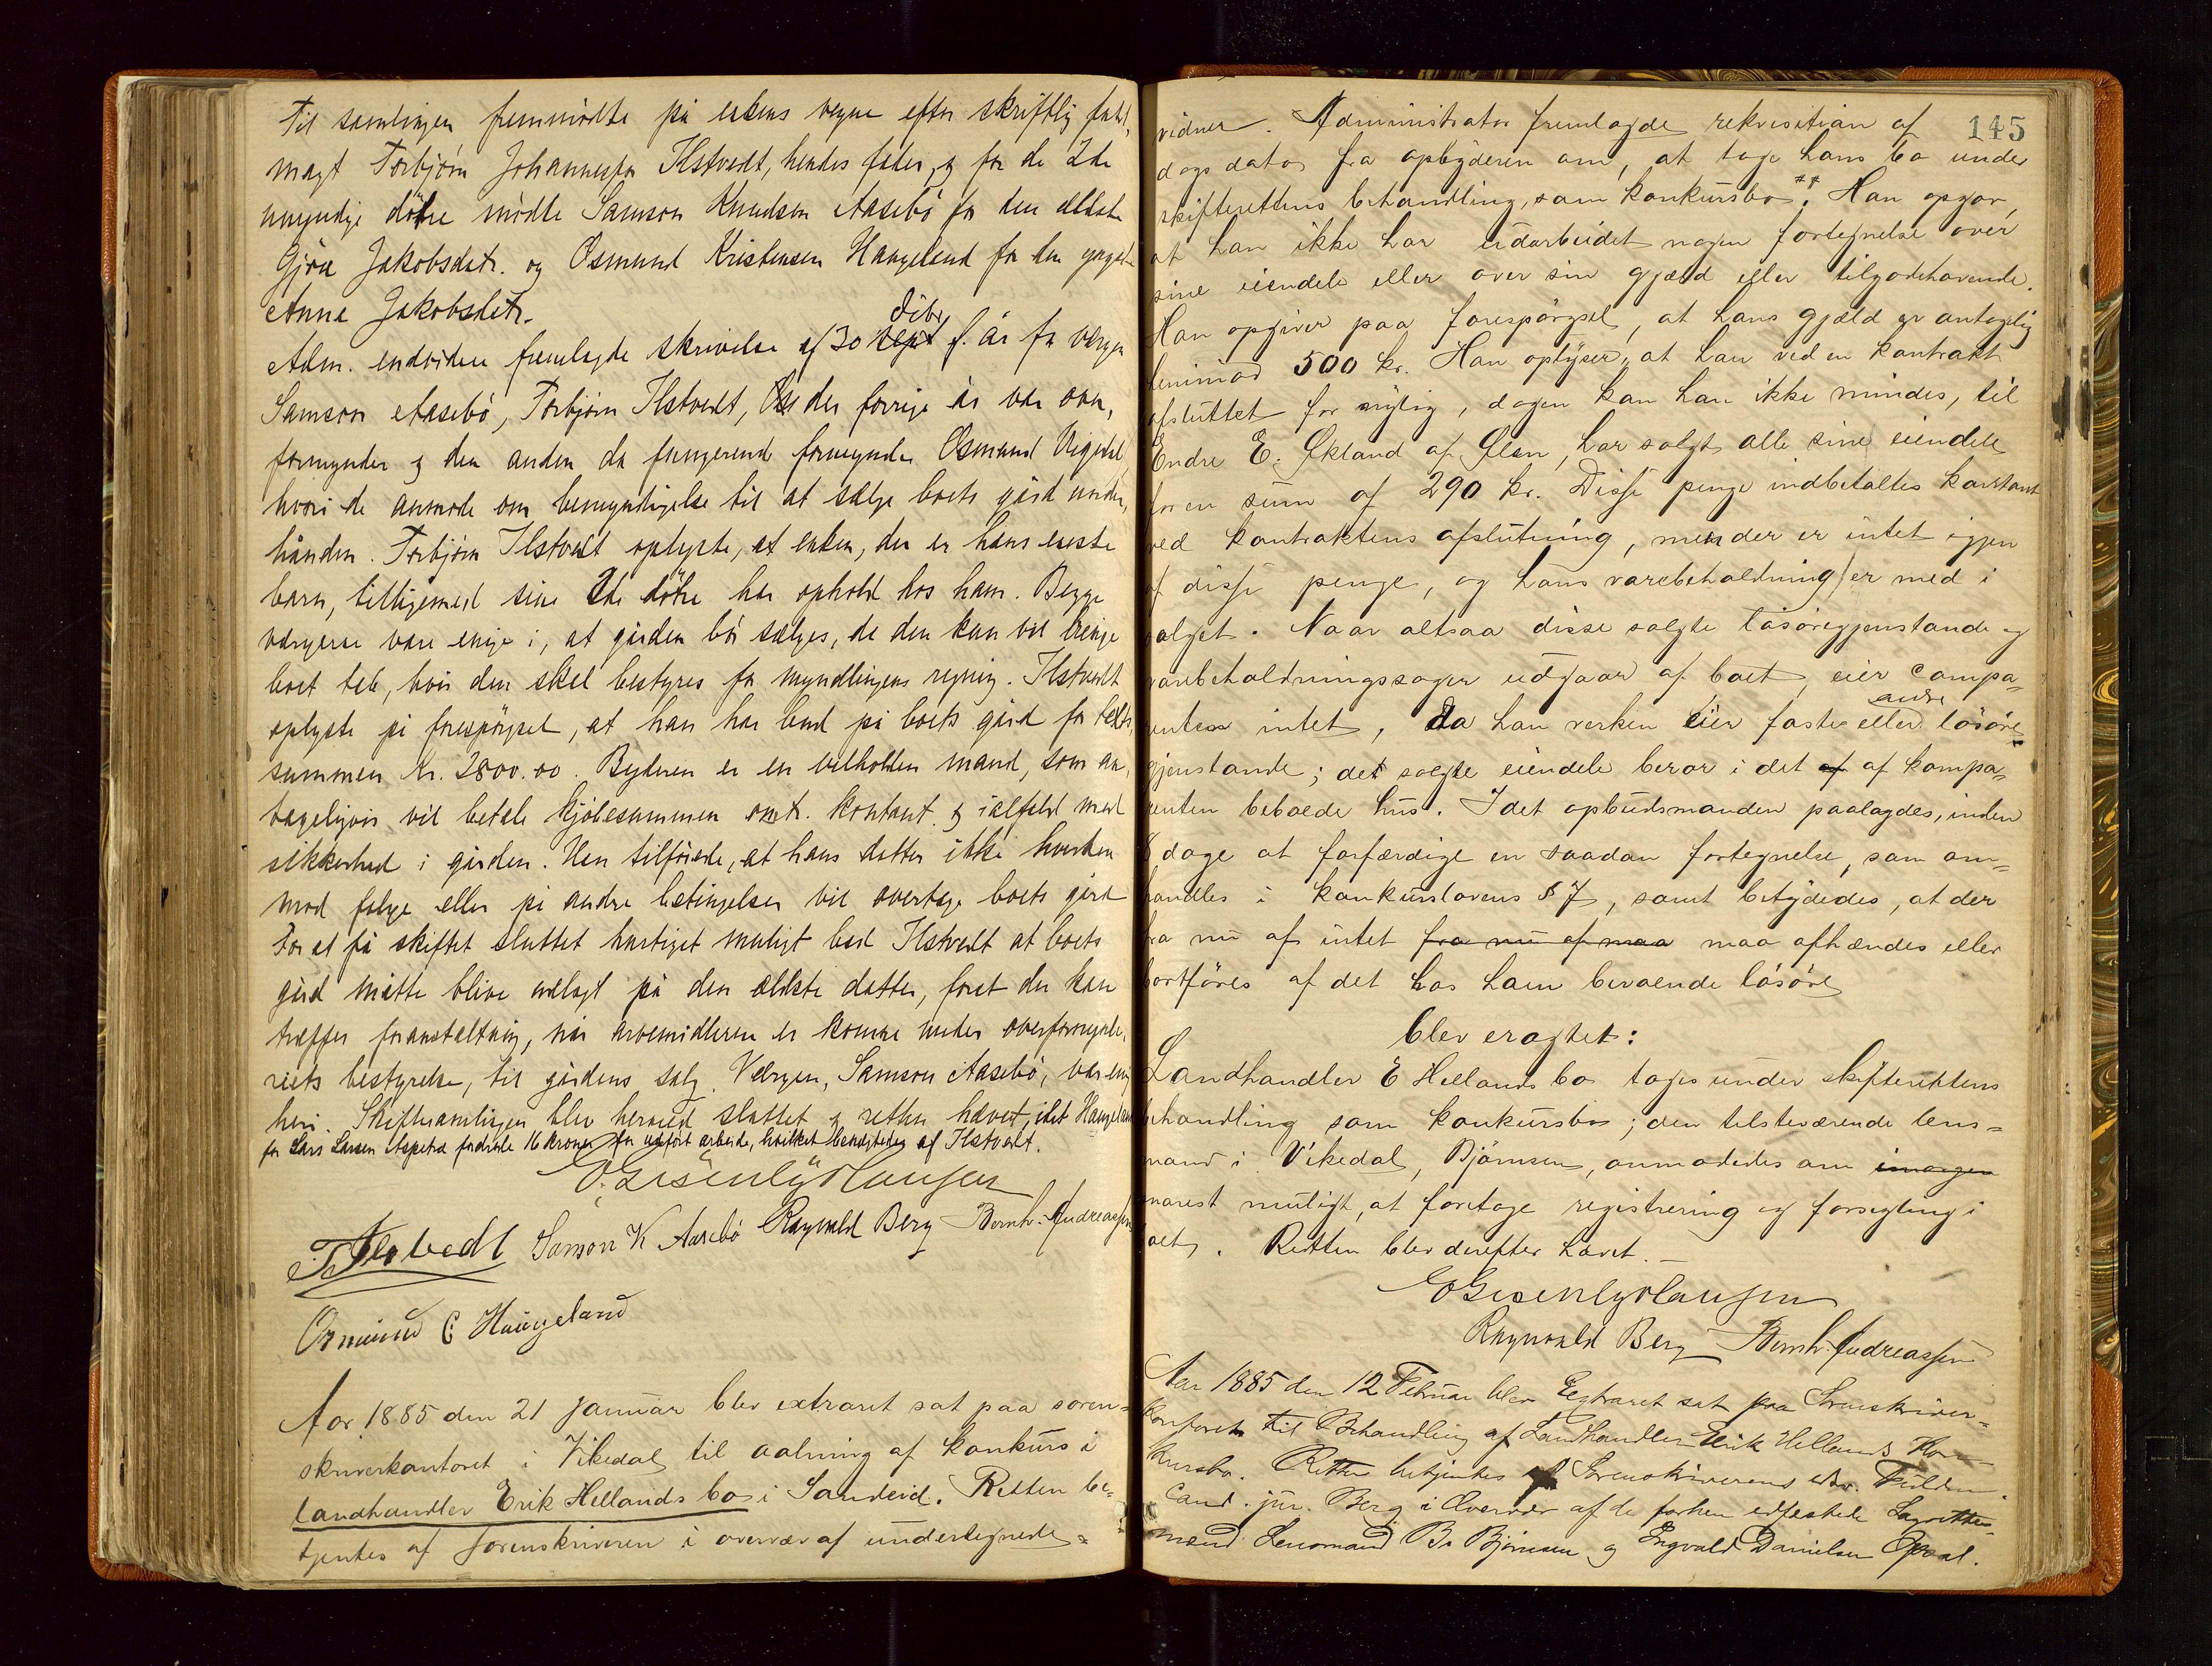 Til samlingen fremmödte på enkens vegne efter skriftlig fuld,
magt Torbjörn Johannessen Ilstvedt, hendes fader, og for de 2de
umyndige döttre mödte Samson Knudsen Aasebö for den ældste
Gjöa Jakobsdatr. og Osmund Kristensen Haugeland for den yngste
Anna Jakobsdatr.
Adm. endvidere fremlagde skrivelse af 30 sept dcbr f. år fra værgen
Samson Aasebö, Torbjörn Ilstvedt, der forrige år var over,
formynder og den anden da fungerende formynder Osmund
hvori de anmode om bemyndigelse til at sælge boets gård under,
hånden. Torbjörn Ilstvedt oplyste, at enken, der er hans eneste
barn, tilligemed sine 2de döttre har ophold hos ham. Begge
værgerne vare enige i, at gården bör sælges, da den kun vil bringe
boet tab, hvis den skal bestyres for myndlingens regning. Ilstvedt
oplyste på forespörgsel, at han har bud på boets gård for takst,
summen Kr. 2800.00. Byderen er en velholden mand, som an,
tageligvis vil betale kjöbesummen omtr. kontant og ialfald med
sikkerhed i gården. Han tilföiede, at hans datter ikke hverken
mod fölge eller på andre betingelser vil overtage boets gård
For at få skiftet sluttet hurtigst muligt bad Ilstvedt at boets
gård måtte blive udlagt på den ældste datter, forat der kan
træffes foranstaltning, når arvemidlerne er komne under overformynde,
riets bestyrelse, til gårdens salg. Værgen, Samson Aasebö, var enig
heri. Skiftesamlingen blev hermed sluttet og retten hævet, idet Haugeland
for Lars Larsen fordrede 16 kroner for udfört arbeide, hvilket benægtedes af Ilstvedt.
T Ilstvedt Samson K Aasebö Raynvald Berg Bernh. Andreassen
Osmund C Haugeland
Aar 1885 den 21 januar blev extraret sat paa soren=
skriverkontoret i Vikedal til aabning af konkurs i
landhandler Erik Hellands bo i Sandeid. Retten be=
tjentes af sorenskriveren i overvær af undertegnede=
145
vidner. Administrator fremlagde rekvisition af
dags dato fra opbyderen om, at tage hans bo under
skifterettens behandling, som konkursbo. Han opgav,
at han ikke har udarbeidet nogen fortegnelse over
sine eiendele eller over sin gjæld eller tilgodehavende.
Han opgiver paa forespörgsel, at hans gjæld er antagelig
henimod 500 kr. Han oplyser, at han ved en kontrakt
afsluttet for nylig, dagen kan han ikke mindes, til
Endre E. Økland af Ølen, har solgt alle sine eiendele
for en sum af 290 kr. Disse penge indbetaltes kontant
ved kontraktens afslutning, men der er intet igjen
af disse penge, og hans varebeholdning er med i
salget. Naar altsaa disse solgte lösöregjenstande og
varebeholdningssager udgaar af boet, eier compa=
renten intet, da han verken eier faste eller andre lösöre=
gjenstande; det solgte eiendele beror i det af af kompa=
renten beboede hus. Idet opbudsmanden paalagdes, inden
8 dage at forfærdige en saadan fortegnelse, som om=
handles i konkurslovens § 7, samt betydedes, at der
fra nu af intet fra nu af maa maa afhændes eller
bortföres af det hos ham beroende lösöre
blev eragtet:
Landhandler E Hellands bo tages under skifterettens
behandling som konkursbo; den tilsteværende lens=
mand i Vikedal, Björnsen, anmodedes om imorgen
snarest muligt, at foretage registrering og forsegling i
boet. Retten blev derefter hævet.
Raynvald Berg Bernh. Andreassen
Aar 1885 den 12 Februar blev Extraret sat paa Sorenskriver=
kontoret til Behandling af Landhandler Erik Hellands Kon=
kursbo. Retten betjentes af Sorenskriverens edsv. Fuldm.
Cand. jur. Berg i Overvær af de forhen edfæstede Lagrettes=
mænd Lensmand B. Björnsen og Engvald Danielsen Opsal.